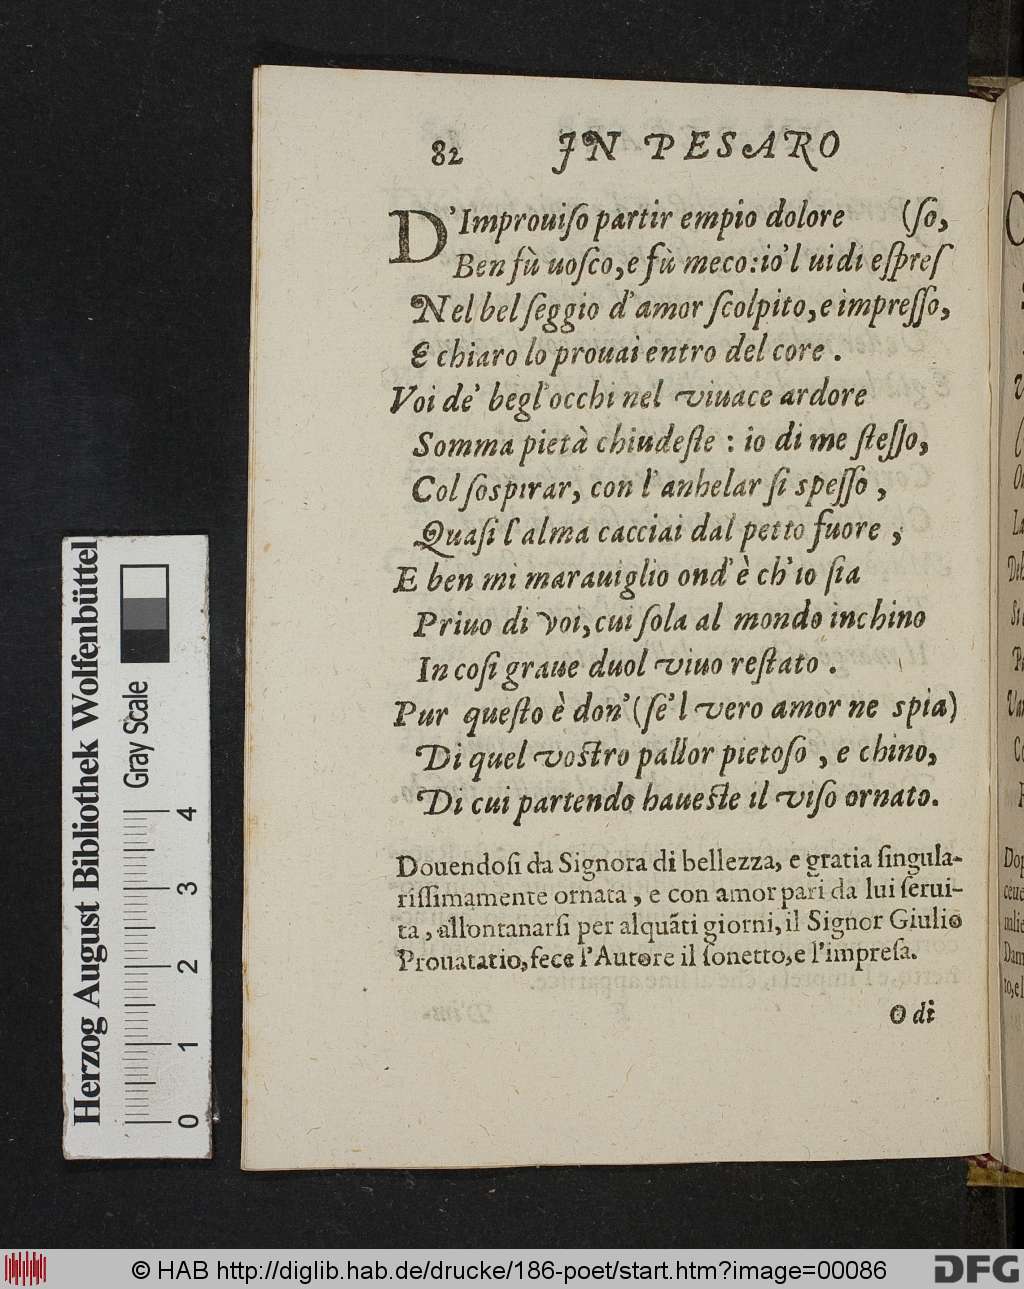 82 IN PESARO
D'Improuiſo partir empio dolore (ſo,
Ben fù uoſco, e fù meco: io'l uidi eſpreſ
Nel bel ſeggio d'amor ſcolpito, e impreſſo,
E chiaro lo prouai entro del core.
Voi de' begl'occhi nel viuace ardore
Somma pietà chiudeſte: io di me ſteſſo,
Col ſoſpirar, con l'anhelar ſi speſſo,
Quaſi l'alma cacciai dal petto fuore;
E ben mi marauiglio ond'è ch'io ſia
Priuo di Voi, cui ſola al mondo inchino
In coſi graue duol viuo reſtato.
Pur queſto è don' (ſe'l vero amor ne spia)
Di quel voſtro pallor pietoſo, e chino,
Di cui partendo haueſte il viſo ornato.
Douendoſi da Signora di bellezza, e gratia ſingula-
riſſimamente ornata, e con amor pari da lui ſerui-
ta, allontanarſi per alquāti giorni, il Signor Giulio
Prouatatio, fece l'Autore il ſonetto, e l'impreſa.
O di
Herzog August Bibliothek Wolfenbüttel
Gray Scale
0 1 2 3 4
© HAB http://diglib.hab.de/drucke/186-poet/start.htm?image=00086
DFG